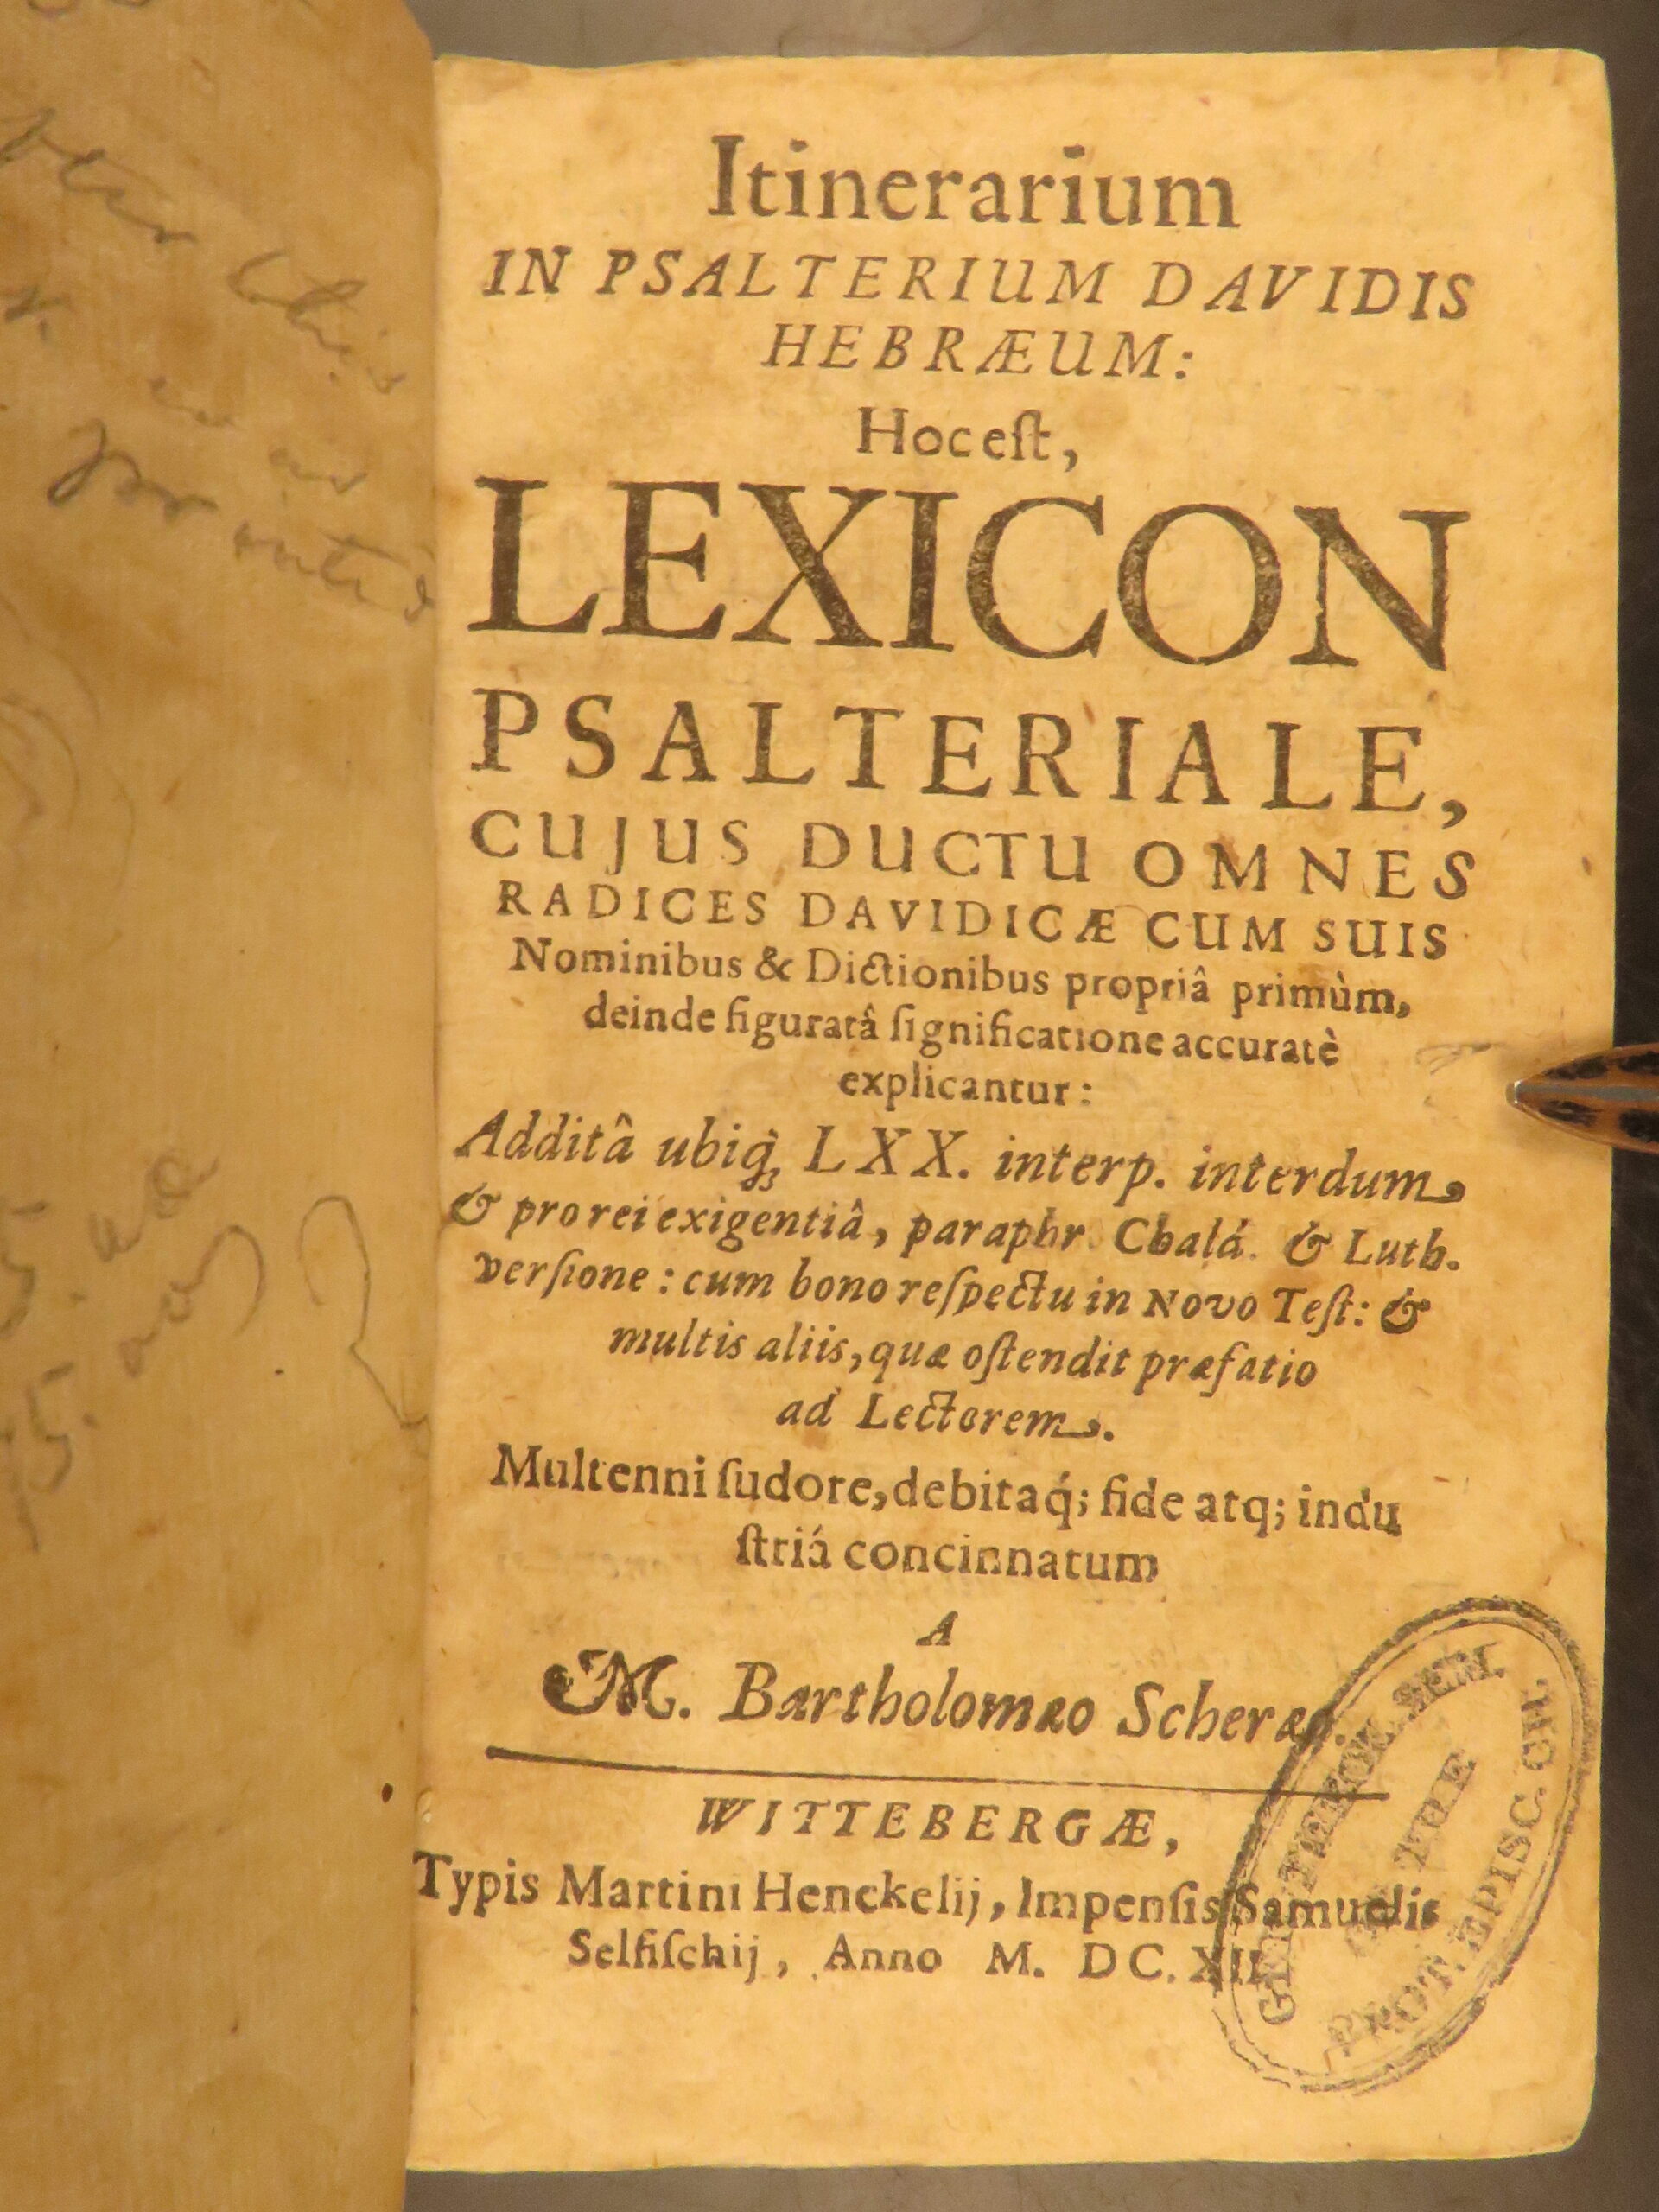 Itinerarium
IN PSALTERIUM DAVIDIS
HEBRÆUM:
Hoc eſt,
LEXICON
PSALTERIALE,
CUJUS DUCTU OMNES
RADICES DAVIDICÆ CUM SUIS
Nominibus & Dictionibus propriâ primùm,
deinde figuratâ ſignificatione accuratè
explicantur:
Additâ ubiq́ꝫ LXX. interp. interdum
& pro rei exigentiâ, paraphr. Chalá. & Luth.
verſione: cum bono reſpectu in Novo Teſt: &
multis aliis, quæ oſtendit præfatio
ad Lectorem.
Multenni ſudore, debitaq́; fide atq; indu
ſtriá concinnatum
A
M. Bartholomæo Scheræo.
WITTEBERGÆ,
Typis Martini Henckelij, Impenſis Samuelis
Selfiſchij, Anno M. DC. XII
PROT. EPISC. OH.